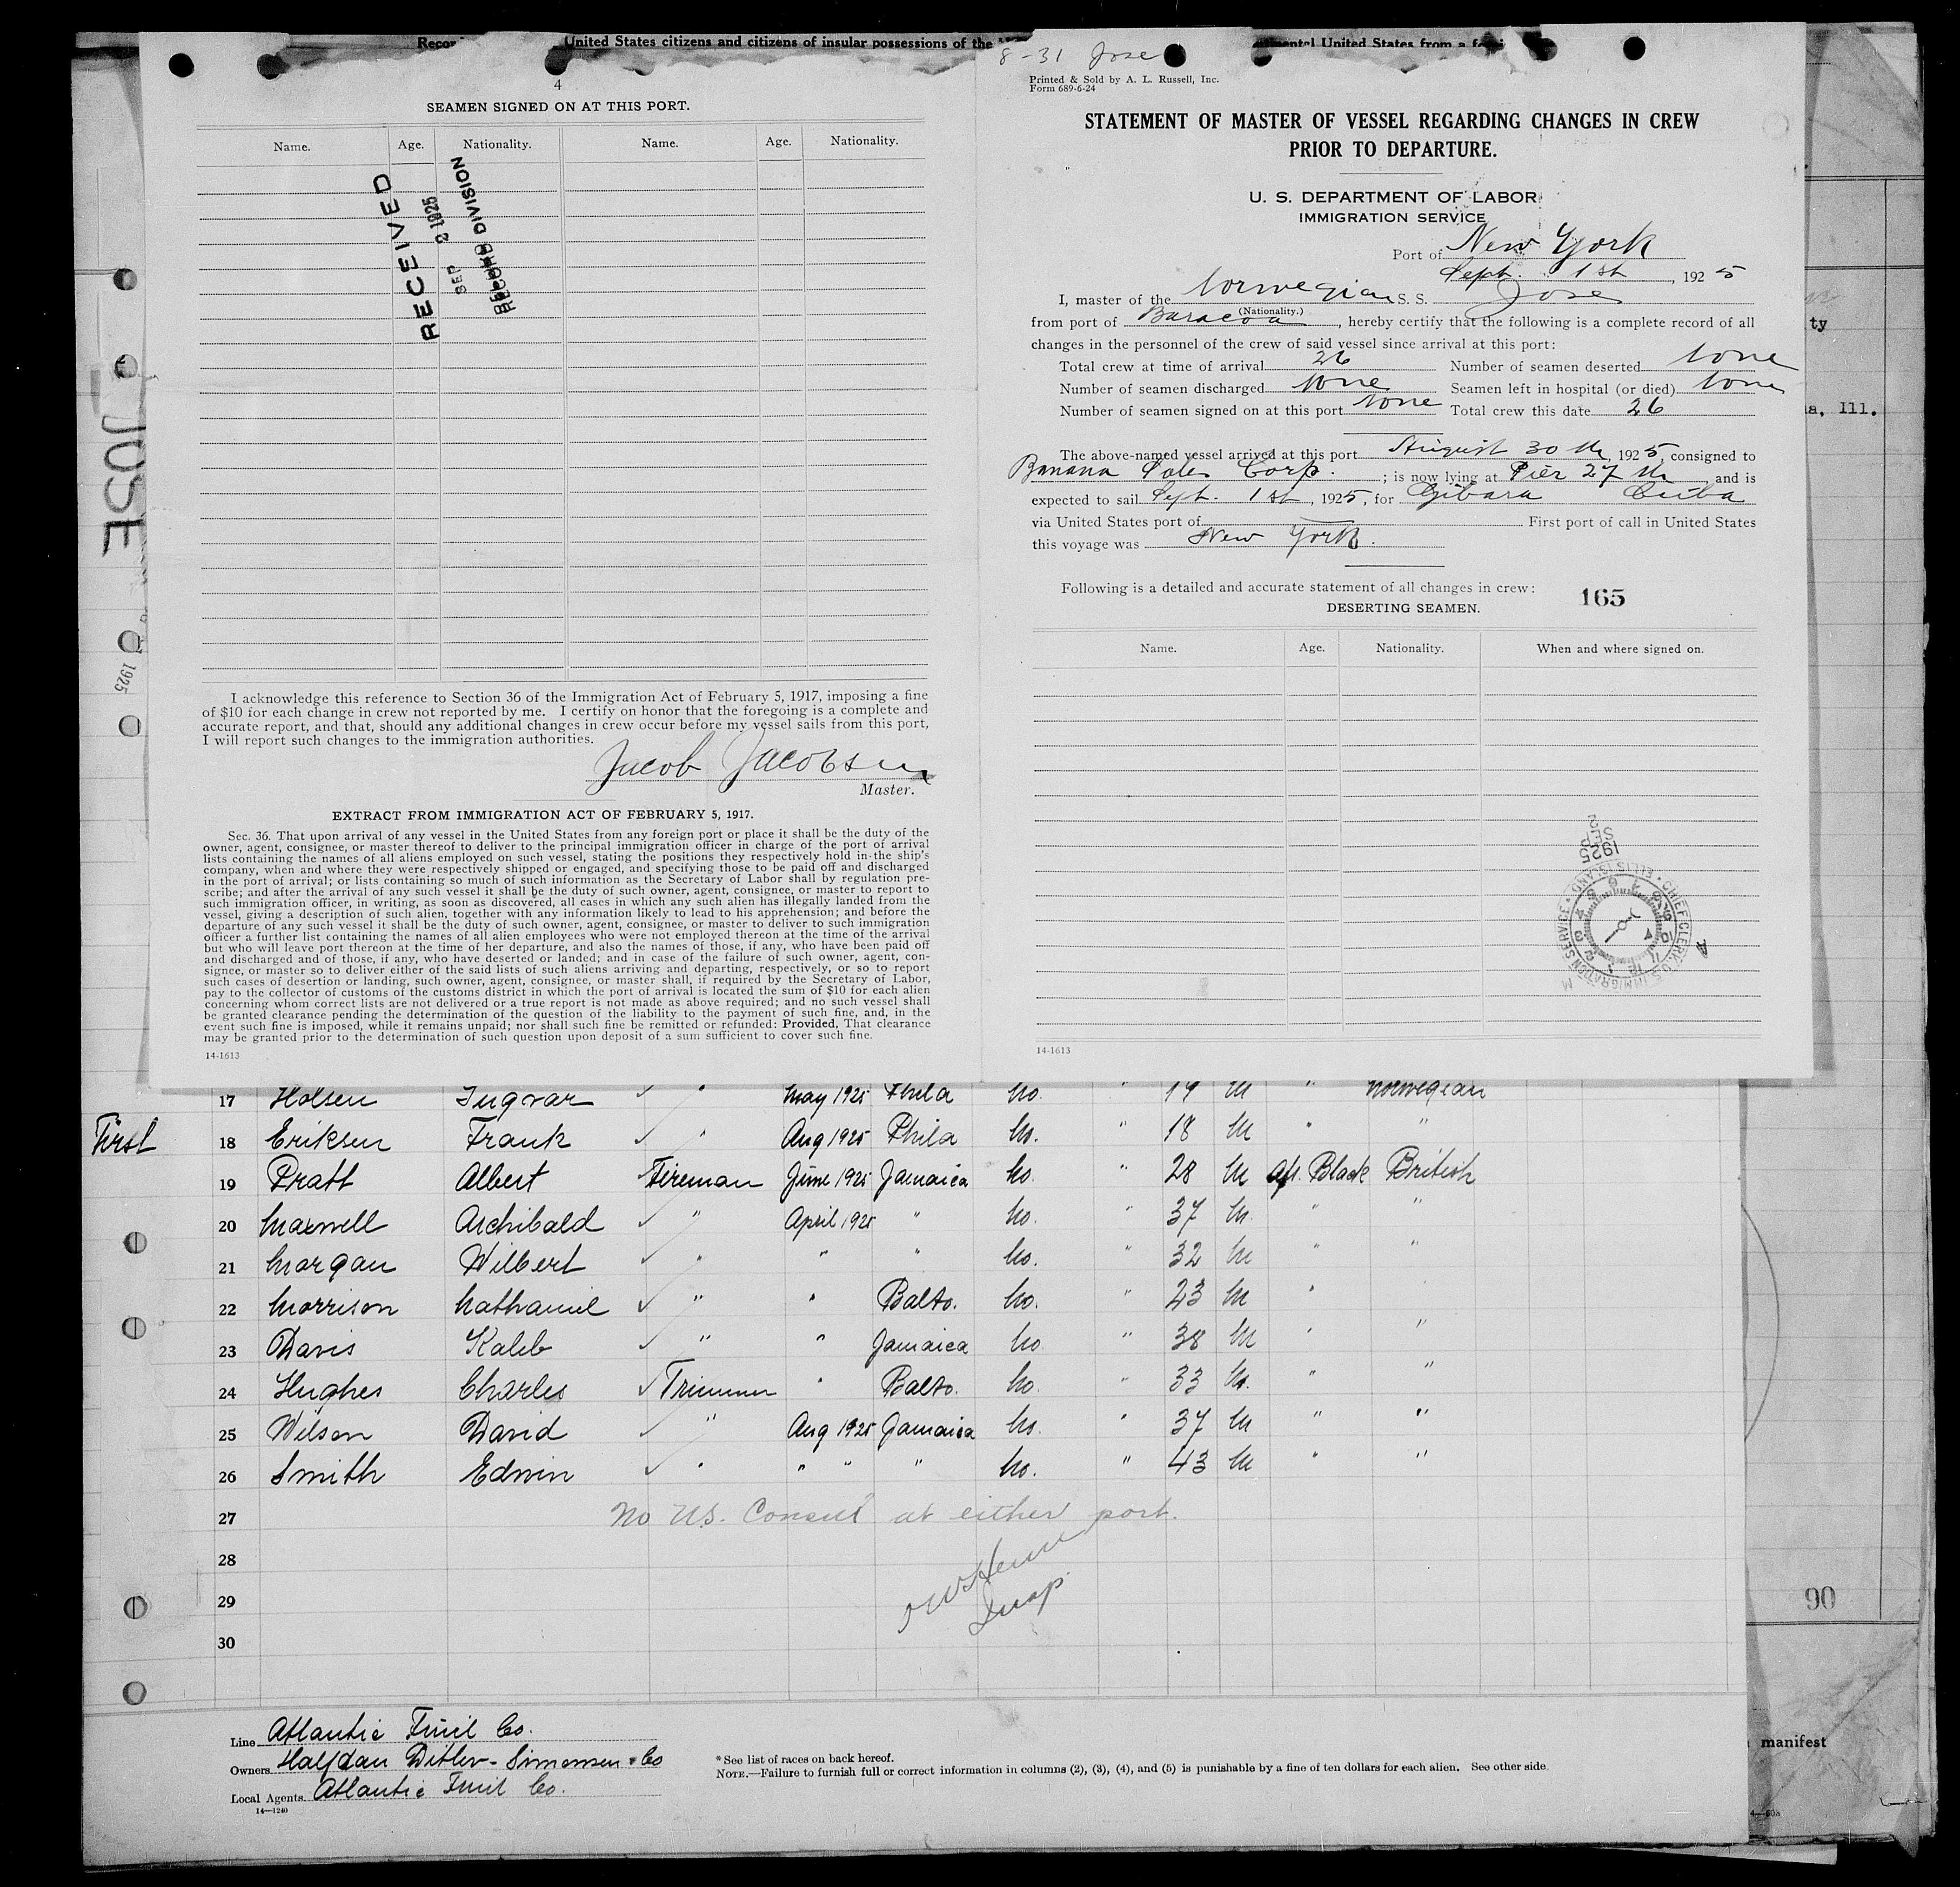 United States citizens and citizens of insular possessions of the
4
SEAMEN SIGNED ON AT THIS PORT.
Name. Age. Nationality. Name. Age. Nationality.
RECEIVED
SEP 2 1925
RECORD DIVISION
I acknowledge this reference to Section 36 of the Immigration Act of February 5, 1917, imposing a fine
of $10 for each change in crew not reported by me. I certify on honor that the foregoing is a complete and
accurate report, and that, should any additional changes in crew occur before my vessel sails from this port,
I will report such changes to the immigration authorities.
Jacob Jacobsen
Master.
EXTRACT FROM IMMIGRATION ACT OF FEBRUARY 5, 1917.
Sec. 36. That upon arrival of any vessel in the United States from any foreign port or place it shall be the duty of the
owner, agent, consignee, or master thereof to deliver to the principal immigration officer in charge of the port of arrival
lists containing the names of all aliens employed on such vessel, stating the positions they respectively hold in the ship's
company, when and where they were respectively shipped or engaged, and specifying those to be paid off and discharged
in the port of arrival; or lists containing so much of such information as the Secretary of Labor shall by regulation pre-
scribe; and after the arrival of any such vessel it shall be the duty of such owner, agent, consignee, or master to report to
such immigration officer, in writing, as soon as discovered, all cases in which any such alien has illegally landed from the
vessel, giving a description of such alien, together with any information likely to lead to his apprehension; and before the
departure of any such vessel it shall be the duty of such owner, agent, consignee, or master to deliver to such immigration
officer a further list containing the names of all alien employees who were not employed thereon at the time of the arrival
but who will leave port thereon at the time of her departure, and also the names of those, if any, who have been paid off
and discharged and of those, if any, who have deserted or landed; and in case of the failure of such owner, agent, con-
signee, or master so to deliver either of the said lists of such aliens arriving and departing, respectively, or so to report
such cases of desertion or landing, such owner, agent, consignee, or master shall, if required by the Secretary of Labor,
pay to the collector of customs of the customs district in which the port of arrival is located the sum of $10 for each alien
concerning whom correct lists are not delivered or a true report is not made as above required; and no such vessel shall
be granted clearance pending the determination of the question of the liability to the payment of such fine, and, in the
event such fine is imposed, while it remains unpaid; nor shall such fine be remitted or refunded: Provided, That clearance
may be granted prior to the determination of such question upon deposit of a sum sufficient to cover such fine.
14-1613
8-31 Jose
Printed & Sold by A. L. Russell, Inc.
Form 689-6-24
STATEMENT OF MASTER OF VESSEL REGARDING CHANGES IN CREW
PRIOR TO DEPARTURE.
U. S. DEPARTMENT OF LABOR
IMMIGRATION SERVICE
Port of New York
Sept. 1st, 1925
I, master of the Norwegian S. S. Jose
(Nationality.)
from port of Baracoa, hereby certify that the following is a complete record of all
changes in the personnel of the crew of said vessel since arrival at this port:
Total crew at time of arrival 26 Number of seamen deserted none
Number of seamen discharged none Seamen left in hospital (or died) none
Number of seamen signed on at this port none Total crew this date 26
The above-named vessel arrived at this port August 30th, 1925, consigned to
Banana Sales Corp. ; is now lying at Pier 27th and is
expected to sail Sept. 1st, 1925, for Gibara Cuba
via United States port of First port of call in United States
this voyage was New York.
Following is a detailed and accurate statement of all changes in crew: 165
DESERTING SEAMEN.
Name. Age. Nationality. When and where signed on.
1925 SEP 2
CHIEF CLERK, U.S. IMMIGRATION SERVICE • ELLIS ISLAND •
14-1613
JOSE
1925
ty
a, Ill.
17 Holsen Ingvar ✓ " May 1925 Phila No. " 19 M " Norwegian
First 18 Eriksen Frank ✓ " Aug 1925 Phila No. " 18 M " "
19 Pratt Albert Fireman June 1925 Jamaica No. " 28 M Af. Black British
20 Maxwell Archibald ✓ " April 1925 " No. " 37 M. " "
21 Morgan Wilbert ✓ " " " No. " 32 M " "
22 Morrison Nathaniel ✓ " " Balto. No. " 23 M "
23 Davis Kaleb ✓ " " Jamaica No " 38 M " "
24 Hughes Charles ✓ Trimmer " Balto. No. " 33 M. " "
25 Wilson David ✓ " Aug 1925 Jamaica No. " 37 M " "
26 Smith Edwin ✓ " " " " No. " 43 M " "
27 No U.S. Consul at either port.
28
29
30
Insp
90
Line Atlantic Fruit Co.
Owners Halfdan Ditlev-Simonsen & Co
Local Agents Atlantic Fruit Co.
14-1240
*See list of races on back hereof.
NOTE.—Failure to furnish full or correct information in columns (2), (3), (4), and (5) is punishable by a fine of ten dollars for each alien. See other side.
manifest